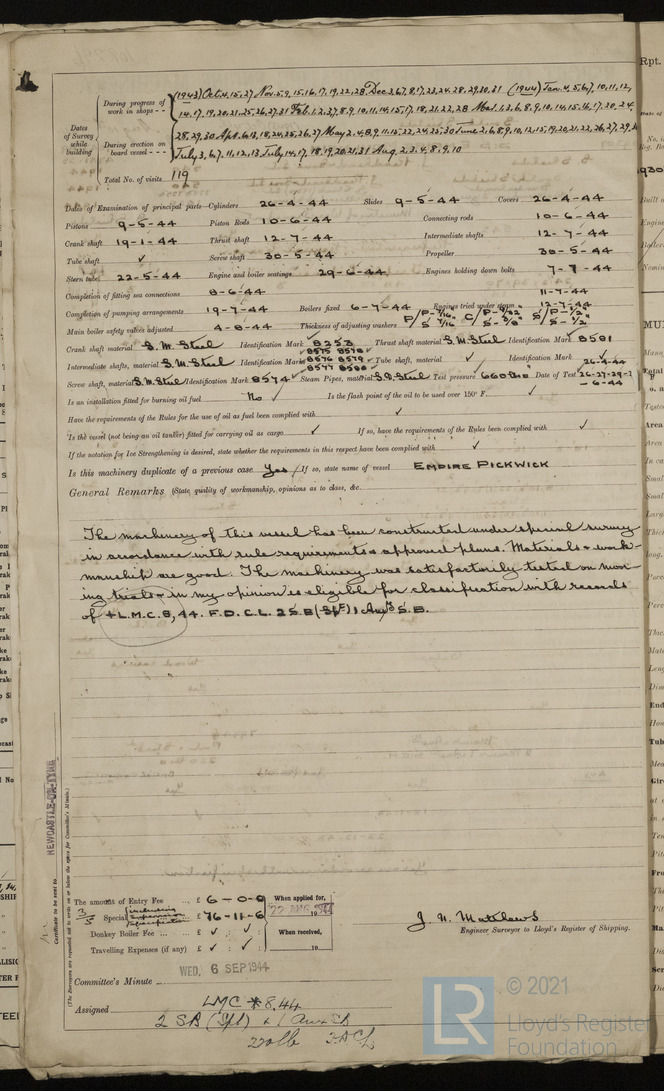 Dates of Survey while building
During progress of work in shops - - (1943) Oct. 4, 15, 27 Nov. 5, 9, 15, 16, 17, 19, 22, 28 Dec. 3, 6, 7, 8, 17, 23, 24, 28, 29, 30, 31 (1944) Jan. 4, 5, 6, 7, 10, 11, 12,
14, 17, 19, 20, 21, 25, 26, 27, 31 Feb. 1, 2, 3, 7, 8, 9, 10, 11, 14, 15, 17, 18, 21, 22, 28 Mar. 1, 3, 6, 8, 9, 10, 14, 15, 16, 17, 20, 24
During erection on board vessel - - - 28, 29, 30 Apl. 18, 24, 25, 26, 27 May 2, 4, 8, 9, 11, 15, 22, 24, 25, 30 June 2, 6, 8, 9, 10, 12, 15, 19, 20, 21, 22, 26, 27, 29
July 3, 6, 7, 11, 12, 13 July 14, 17, 18, 19, 20, 21, 31 Aug. 2, 3, 4, 8, 9, 10
Total No. of visits 119
Dates of Examination of principal parts—Cylinders 26-4-44 Slides 9-5-44 Covers 26-4-44
Pistons 9-5-44 Piston Rods 10-6-44 Connecting rods 10-6-44
Crank shaft 19-1-44 Thrust shaft 12-7-44 Intermediate shafts 12-7-44
Tube shaft ✓ Screw shaft 30-5-44 Propeller 30-5-44
Stern tube 22-5-44 Engine and boiler seatings 29-6-44 Engines holding down bolts 7-7-44
Completion of fitting sea connections 8-6-44 11-7-44
Completion of pumping arrangements 19-7-44 Boilers fixed 6-7-44 Engines tried under steam 12-7-44
Main boiler safety valves adjusted 4-8-44 Thickness of adjusting washers
Crank shaft material S.M. Steel Identification Mark 8253 Thrust shaft material S.M. Steel Identification Mark 8581
Intermediate shafts, material S.M. Steel Identification Marks 8575 8578 8576 8579 8577 8580 Tube shaft, material ✓ Identification Mark ✓
Screw shaft, material S.M. Steel Identification Mark 8574 Steam Pipes, material S.D. Steel Test pressure 660 Date of Test 26-4-44
Is an installation fitted for burning oil fuel No Is the flash point of the oil to be used over 150° F. ✓
Have the requirements of the Rules for the use of oil as fuel been complied with ✓
Is the vessel (not being an oil tanker) fitted for carrying oil as cargo ✓ If so, have the requirements of the Rules been complied with ✓
If the notation for Ice Strengthening is desired, state whether the requirements in this respect have been complied with ✓
Is this machinery duplicate of a previous case Yes If so, state name of vessel EMPIRE PICKWICK
General Remarks (State quality of workmanship, opinions as to class, &c.
The machinery of this vessel has been constructed under special survey
in accordance with rule requirements & approved plans. Materials & work-
manship are good. The machinery was satisfactorily tested on run-
ing trials & in my opinion is eligible for classification with records
of +L.M.C. 8,44. F.D. C.L. 2 S.B (Spt) 1 Aux S.B.
NEWCASTLE-ON-TYNE
Certificate to be sent to
(The Surveyors are requested not to write on or below the space for Committee's Minute.)
The amount of Entry Fee ... £ 6-0-0 When applied for,
Special £ 76-11-6 22 AUG 1944
Donkey Boiler Fee ... ... £ ✓ : ✓ : When received,
Travelling Expenses (if any) £ ✓ : ✓ : 19
J. N. Matthews
Engineer Surveyor to Lloyd's Register of Shipping.
WED. 6 SEP 1944
Committee's Minute
Assigned LMC * 8.44
2 SB (Spt) & 1 Aux SB
220 lb
LR
© 2021
Lloyd's Register
Foundation
Rpt.